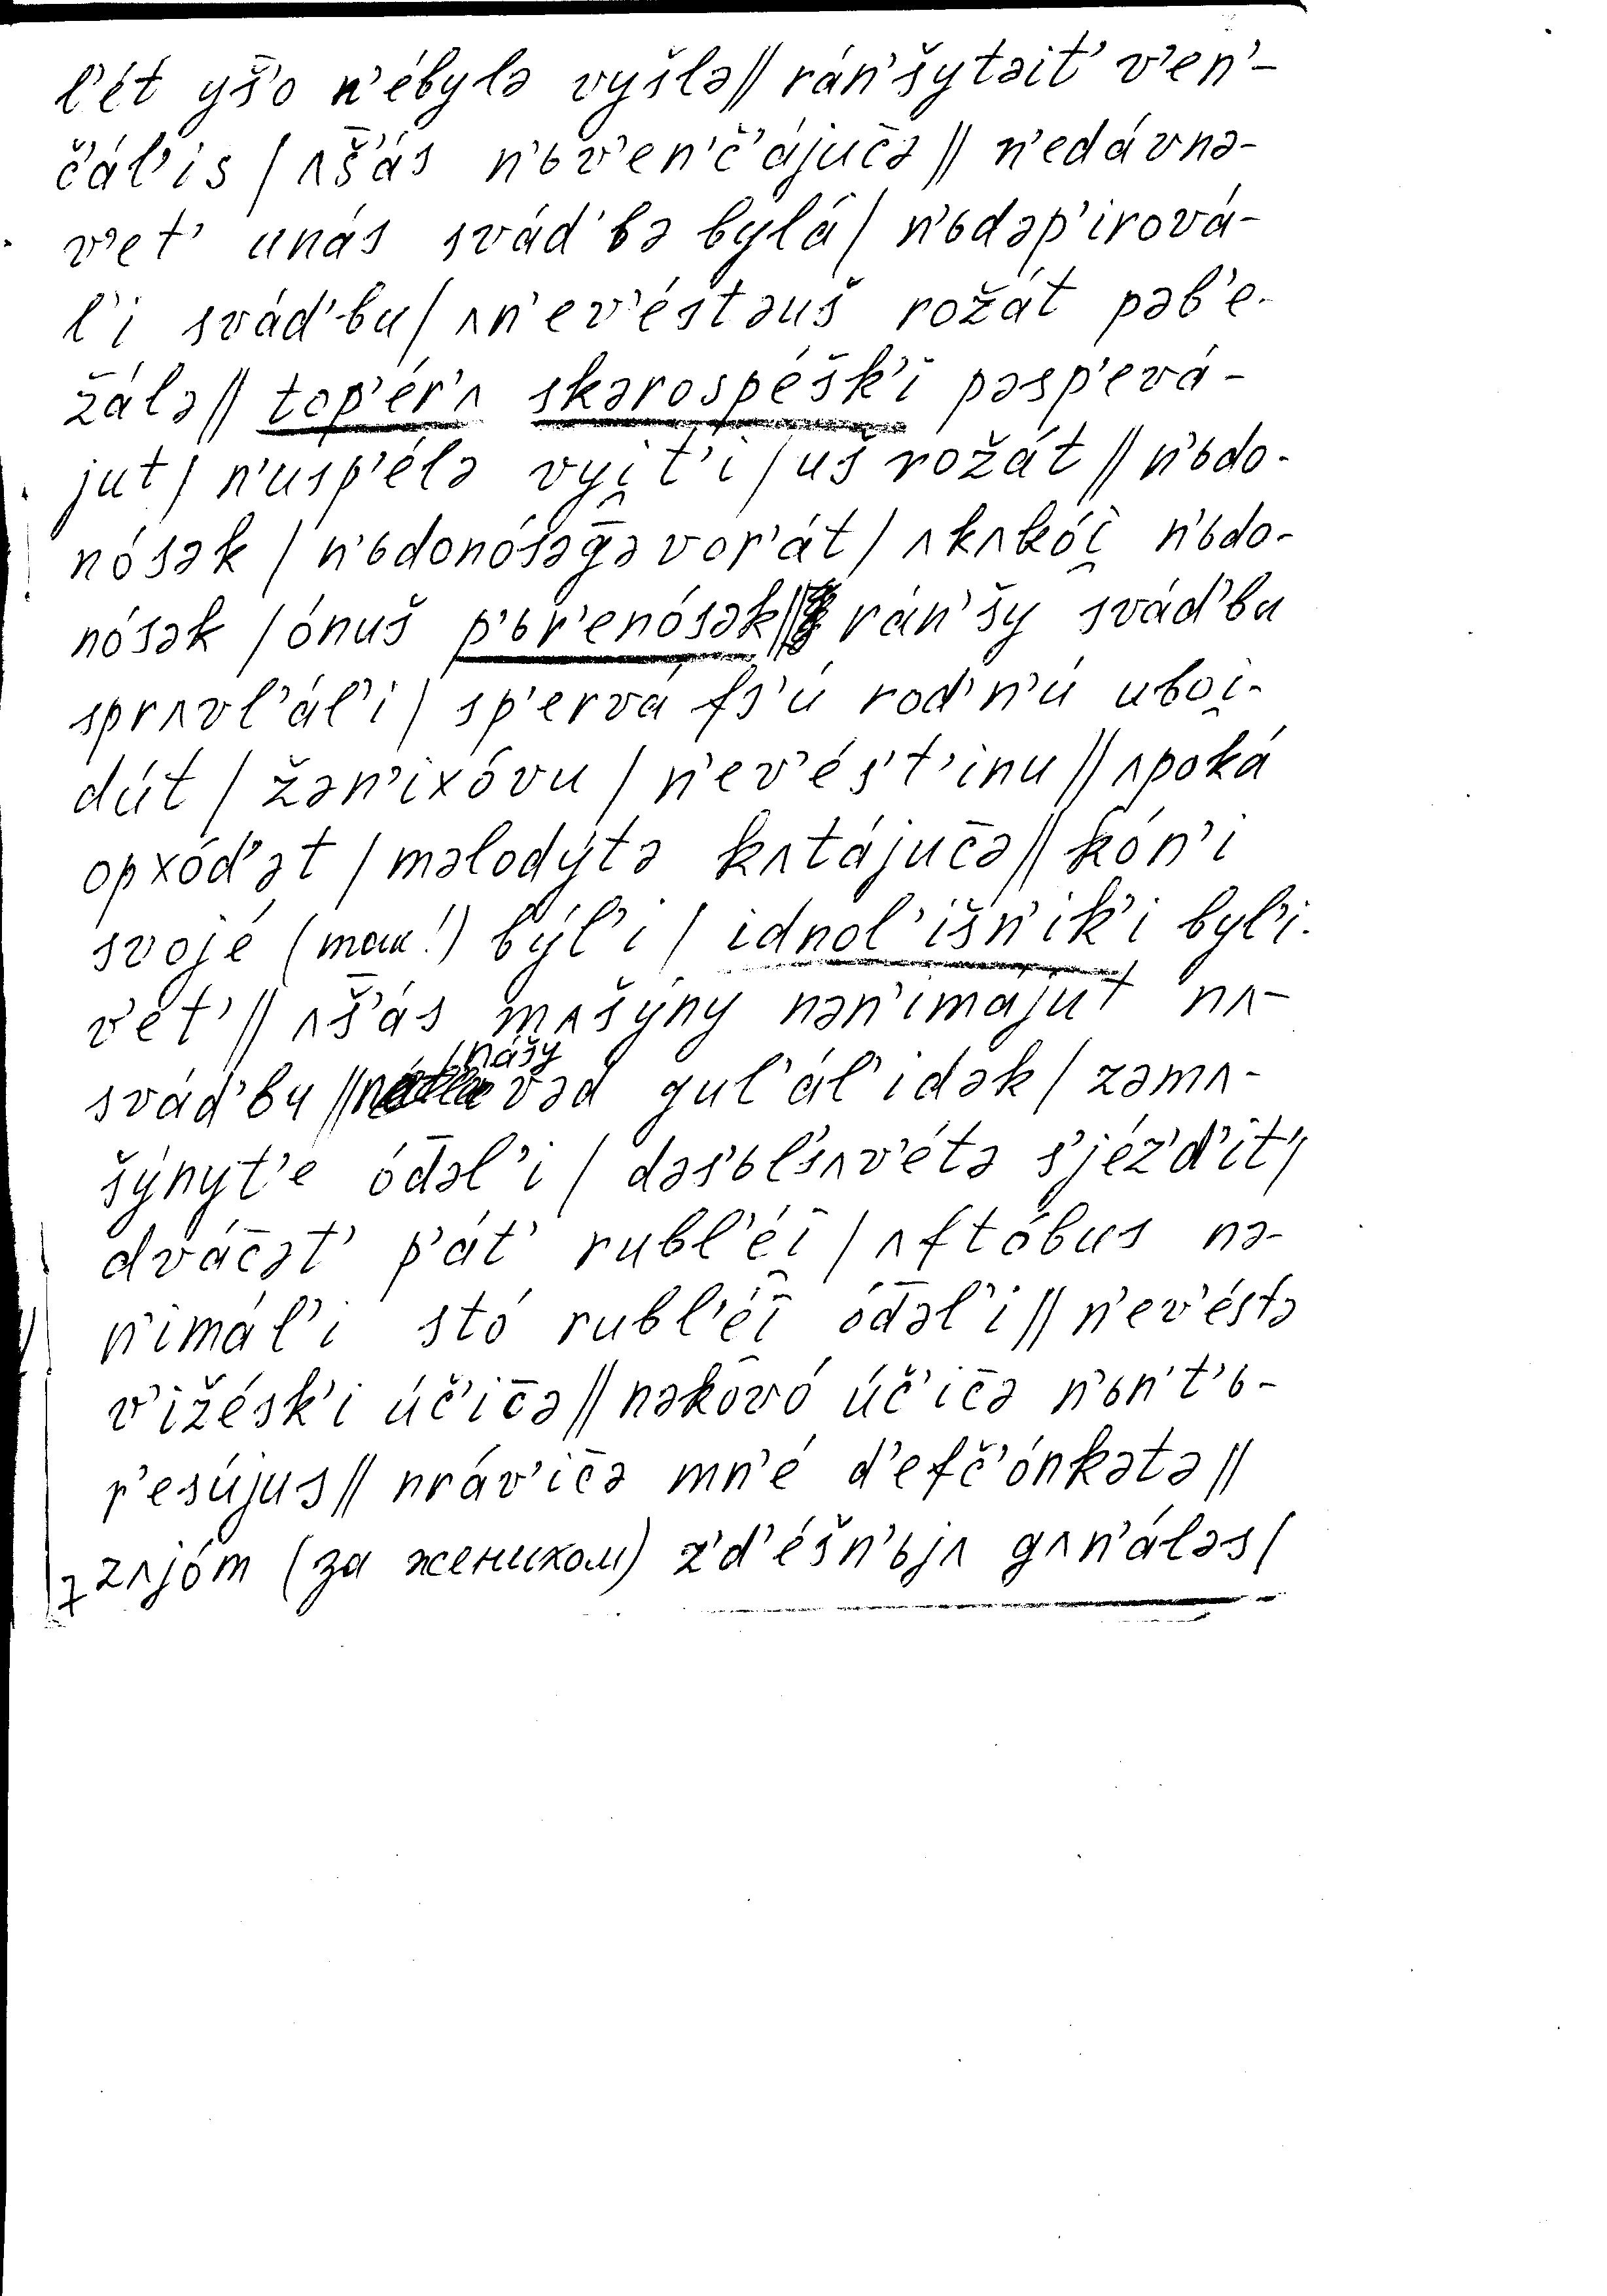 l’ét yš̄’o n’ébylə vyšlə// rán’šytəit’ v’en’-
č’ál’is / ʌš̄’ás n’ьv’en’č’ájuc̄ə // n’edávnə-
v’et’ unás svád’bə bylá / n’ьdəp’irová-
l’i svád’bu / ʌn’ev’éstəuš rožát pəb’e-
žálə // top’ér’ʌ skərospéšk’i pəsp’evá-
jut / n’usp’élə vyi̯t’i / uš rožát // n’ьdo-
nósək / n’ьdonósəḡəvor’át / ʌkʌkói̯ n’ьdo-
nósək / ónuš p’ьr’enósək// rán’šy svád’bu
sprʌvl’ál’i / sp’ervá fs’ú rod’n’ú uboi̯-
dút / žən’ixóvu / n’ev’és’t’inu // ʌpoká
opxód’ət / məlodýtə kʌtájuc̄ə // kón’i
svojé (так!) býl’i / idnol’išn’ik’i byl’i-
v’et’ // ʌš̄’ás mʌšýny nən’imájut nʌ-
svád’bu // nášy vəd gul’ál’idək / zəmʌ-
šýnyt’e ód̄əl’i / dəs’ьl’sʌv’étə s’jéz’d’it’/
dvác̄ət’ p’át’ rubl’éi̯ / ʌftóbus nə-
n’imál’i stó rubl’éi̯ ód̄əl’i // n’ev’éstə
v’ižésk’i úč’ic̄ə // nəkovó úč’ic̄ə n’ьn’t’ь-
r’esújus // nráv’ic̄ə mn’é d’efč’ónkətə //
zʌjóm (за женихом) z’d’éšn’ьjʌ gʌn’áləs /